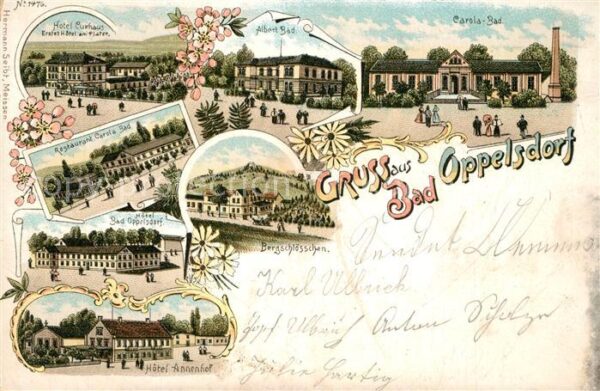 No. 1476.
Hermann Seibt, Meissen
Hotel Curhaus
Erstes Hôtel am Platze.
Albert Bad.
Carola-Bad.
Restaurant Carola Bad.
Gruss aus
Bad Oppelsdorf
Hôtel
Bad Oppelsdorf.
Bergschlösschen.
Hôtel Annenhof
Sendet
Karl Ullrich
Anton Scholze
Hartig